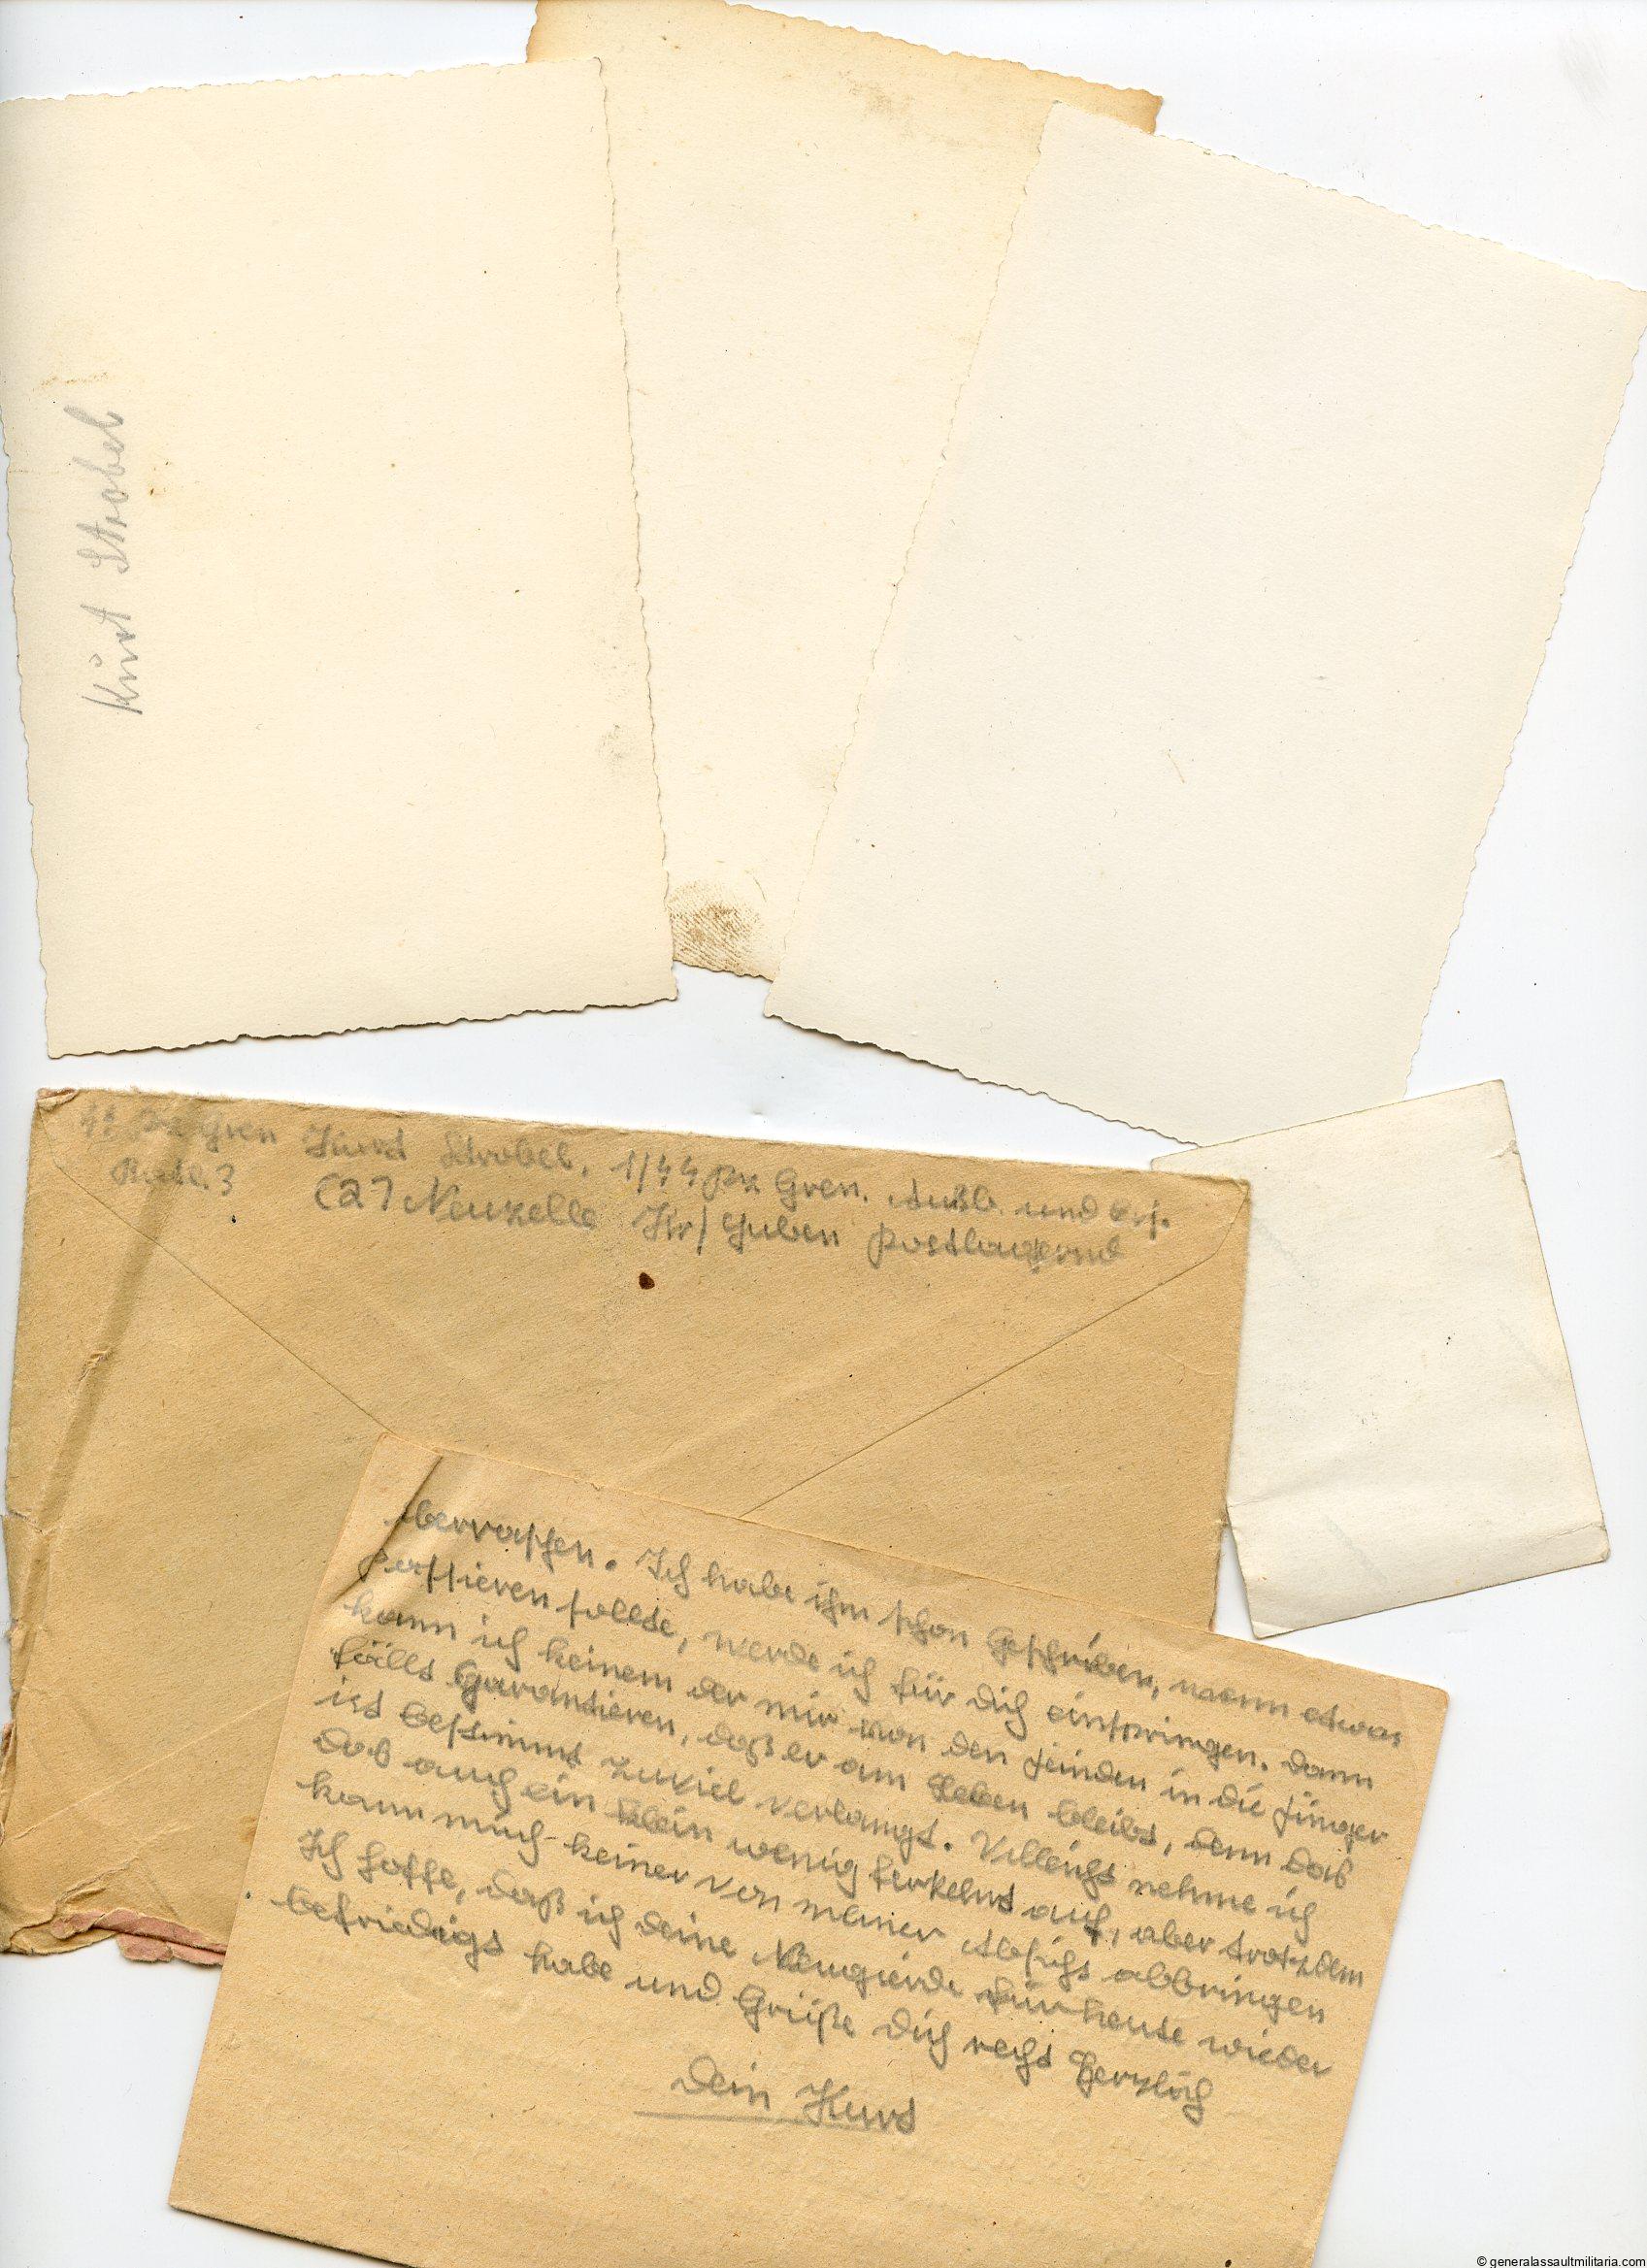 Kurt Strobel
Pz Gren Kurt Strobel, 1/44 Pz Gren. Ausb. und Ers.
Batl. 3 (2) Neuzelle Kr/ Guben postlagernd
überraschen. Ich habe ihm schon Geschrieben, wenn etwas
passieren sollte, werde ich für dich einspringen. Dann
kann ich keinem der mir von den Feinden in die Finger
fälls Garantieren, daß er am Leben bleibt, denn das
ist bestimmt zuviel verlangt. Villeicht nehme ich
das auch ein klein wenig ferkehrt auf, aber trotzdem
kann mich keiner von meiner Absicht abbringen
Ich hoffe, daß ich deine Neugierde für heute wieder
befriedigt habe und Grüße dich recht Herzlich
Dein Kurt
© generalassaultmilitaria.com